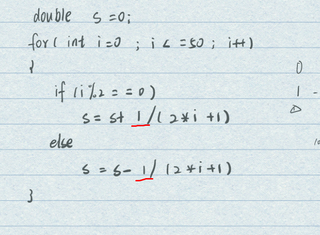 double s=0;
for( int i=0 ; i<=50 ; i++)
{
0
if (i%2==0)
1 -
s = s+ 1/(2*i+1)
else
s = s- 1/(2*i+1)
}